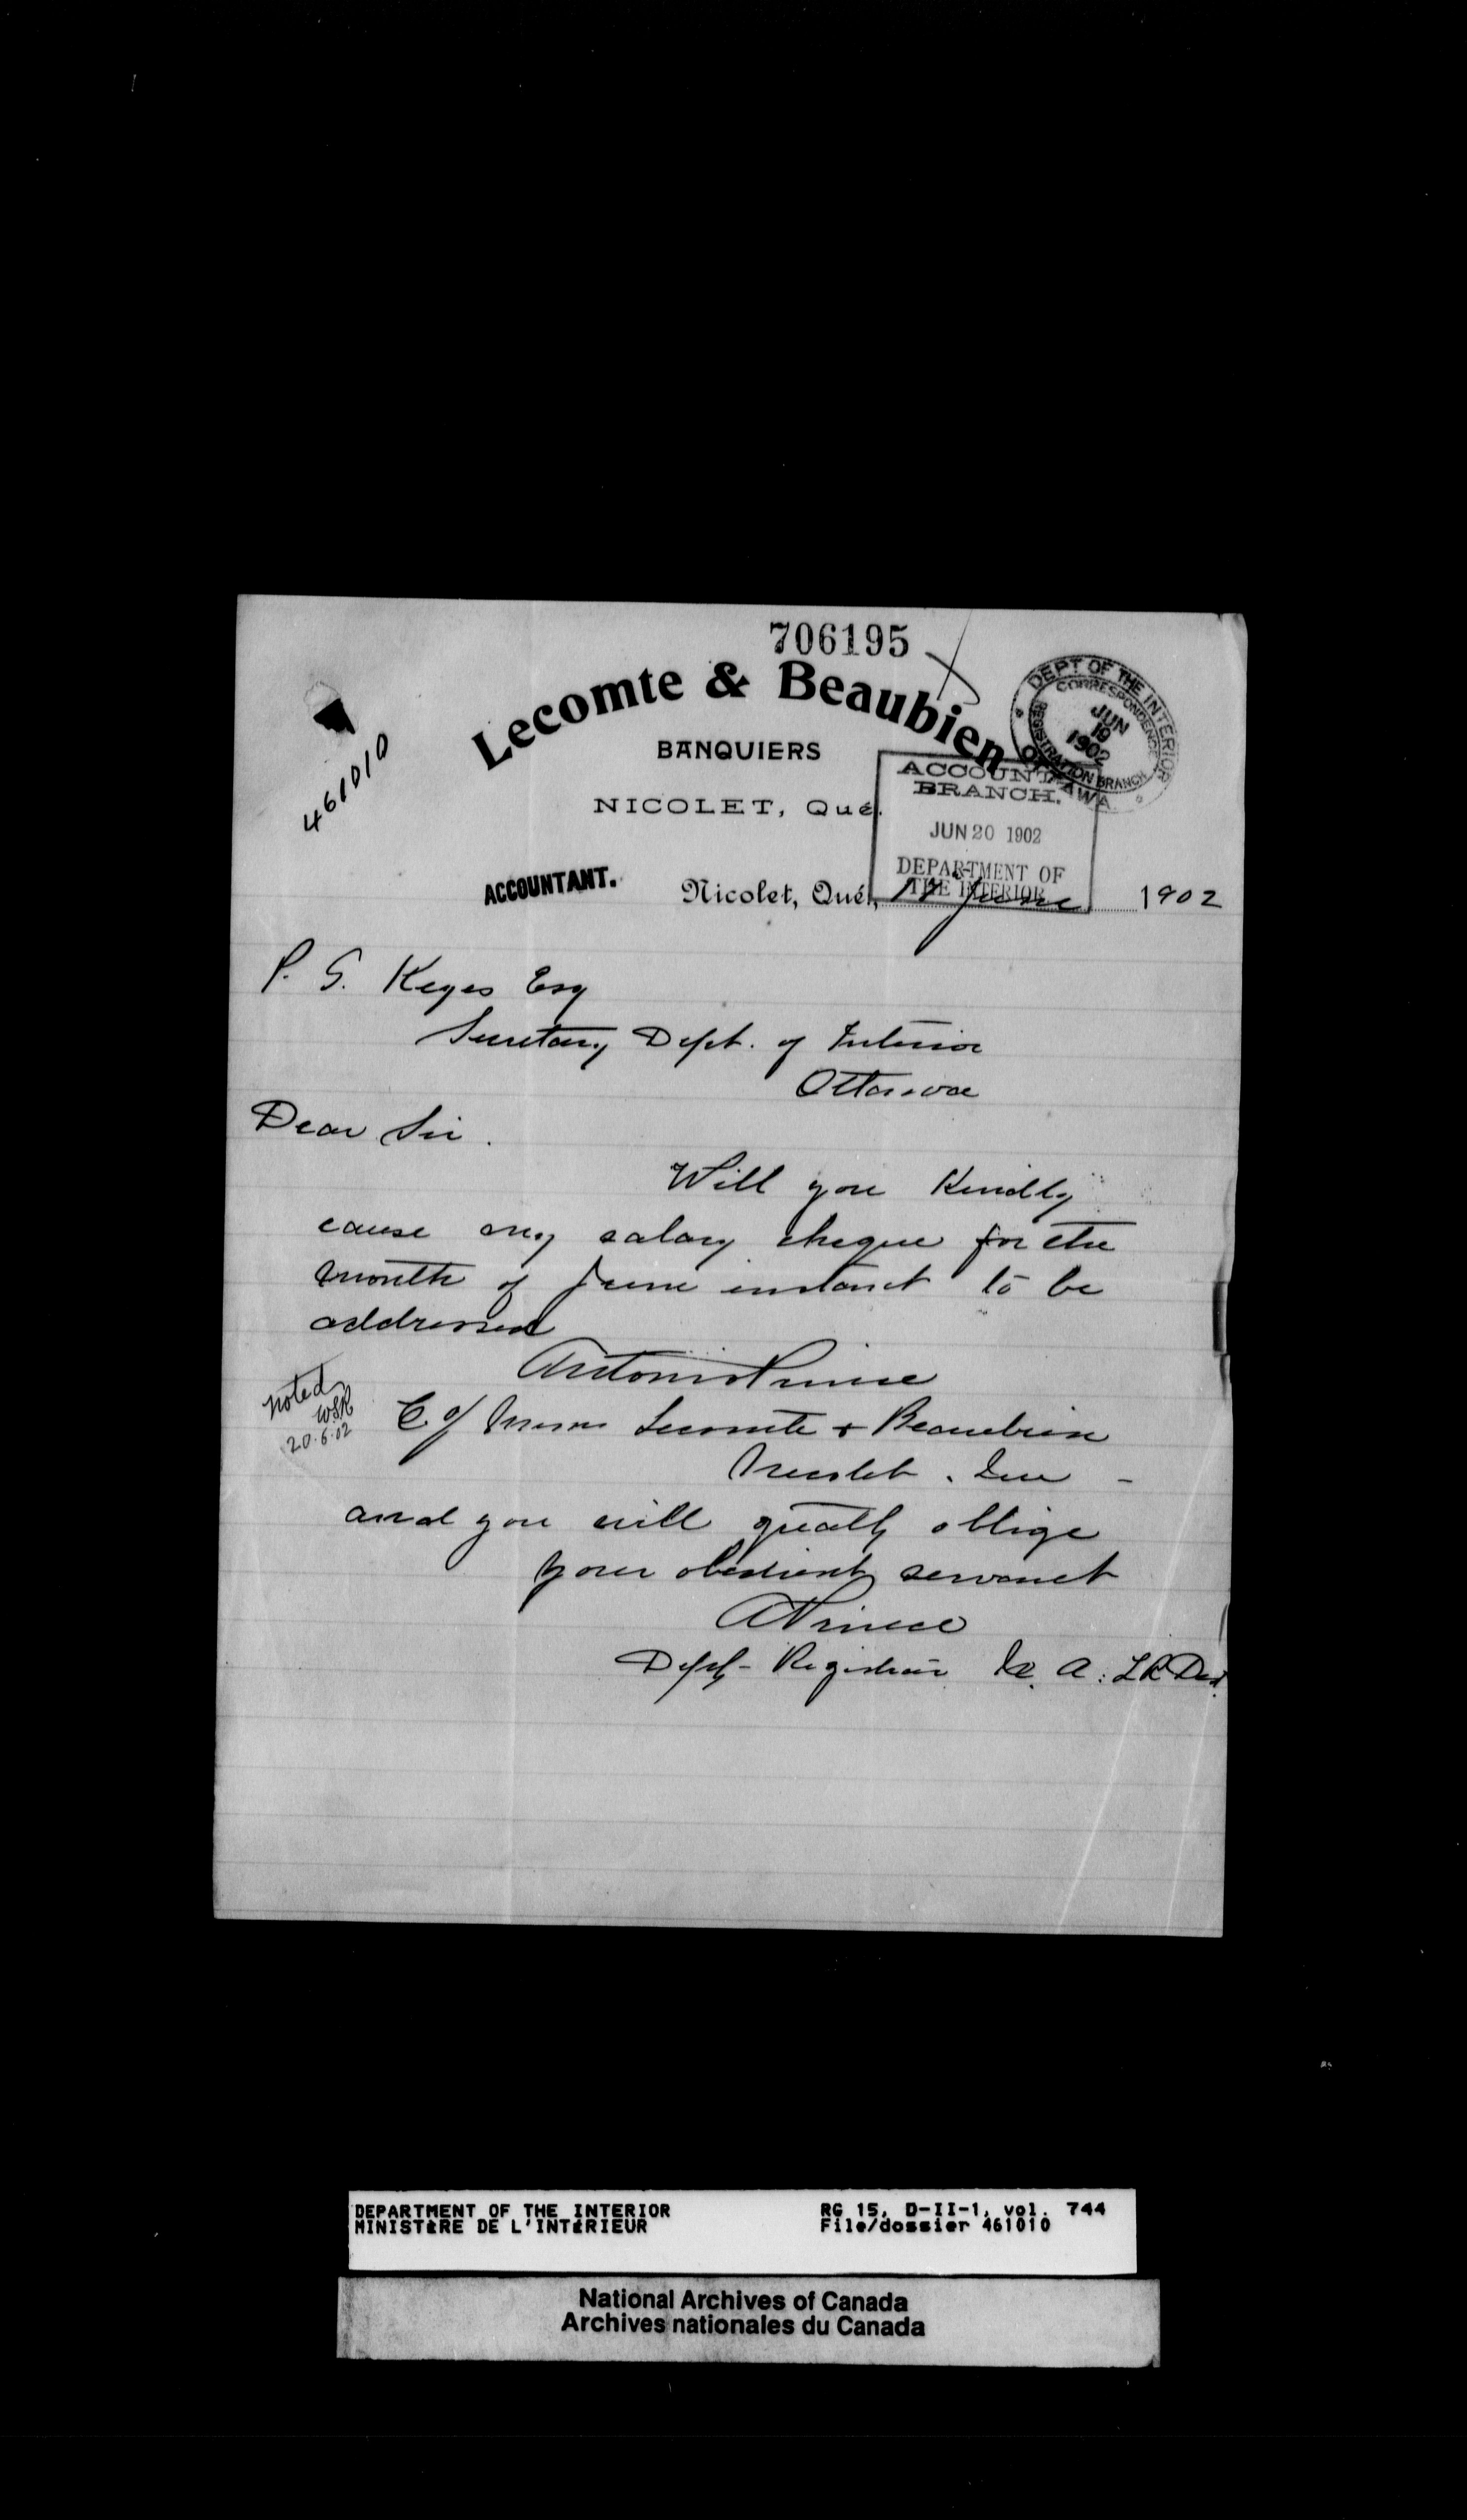 706195
Lecomte & Beaubien
BANQUIERS
NICOLET, Qué.
461010
DEPT OF THE INTERIOR
CORRESPONDENCE
REGISTRATION BRANCH
JUN
19
1902
OTTAWA
ACCOUNT
BRANCH.
JUN 20 1902
DEPARTMENT OF
THE INTERIOR
ACCOUNTANT.
Nicolet, Qué, June 1902
P. G. Keyes Esq
Secretary Dept. of Interior
Ottawa
Dear Sir.
Will you Kindly
cause my salary cheque for the
month of June instant to be
addressed
Antonio Prince
C/o Messrs Lecomte & Beaubien
Nicolet. Que -
noted
WSR
20.6.02
and you will greatly oblige
your obedient servant
A Prince
Depty - Registrar A. L R Dist
DEPARTMENT OF THE INTERIOR
MINISTÈRE DE L'INTÉRIEUR
RG 15, D-II-1, vol. 744
File/dossier 461010
National Archives of Canada
Archives nationales du Canada